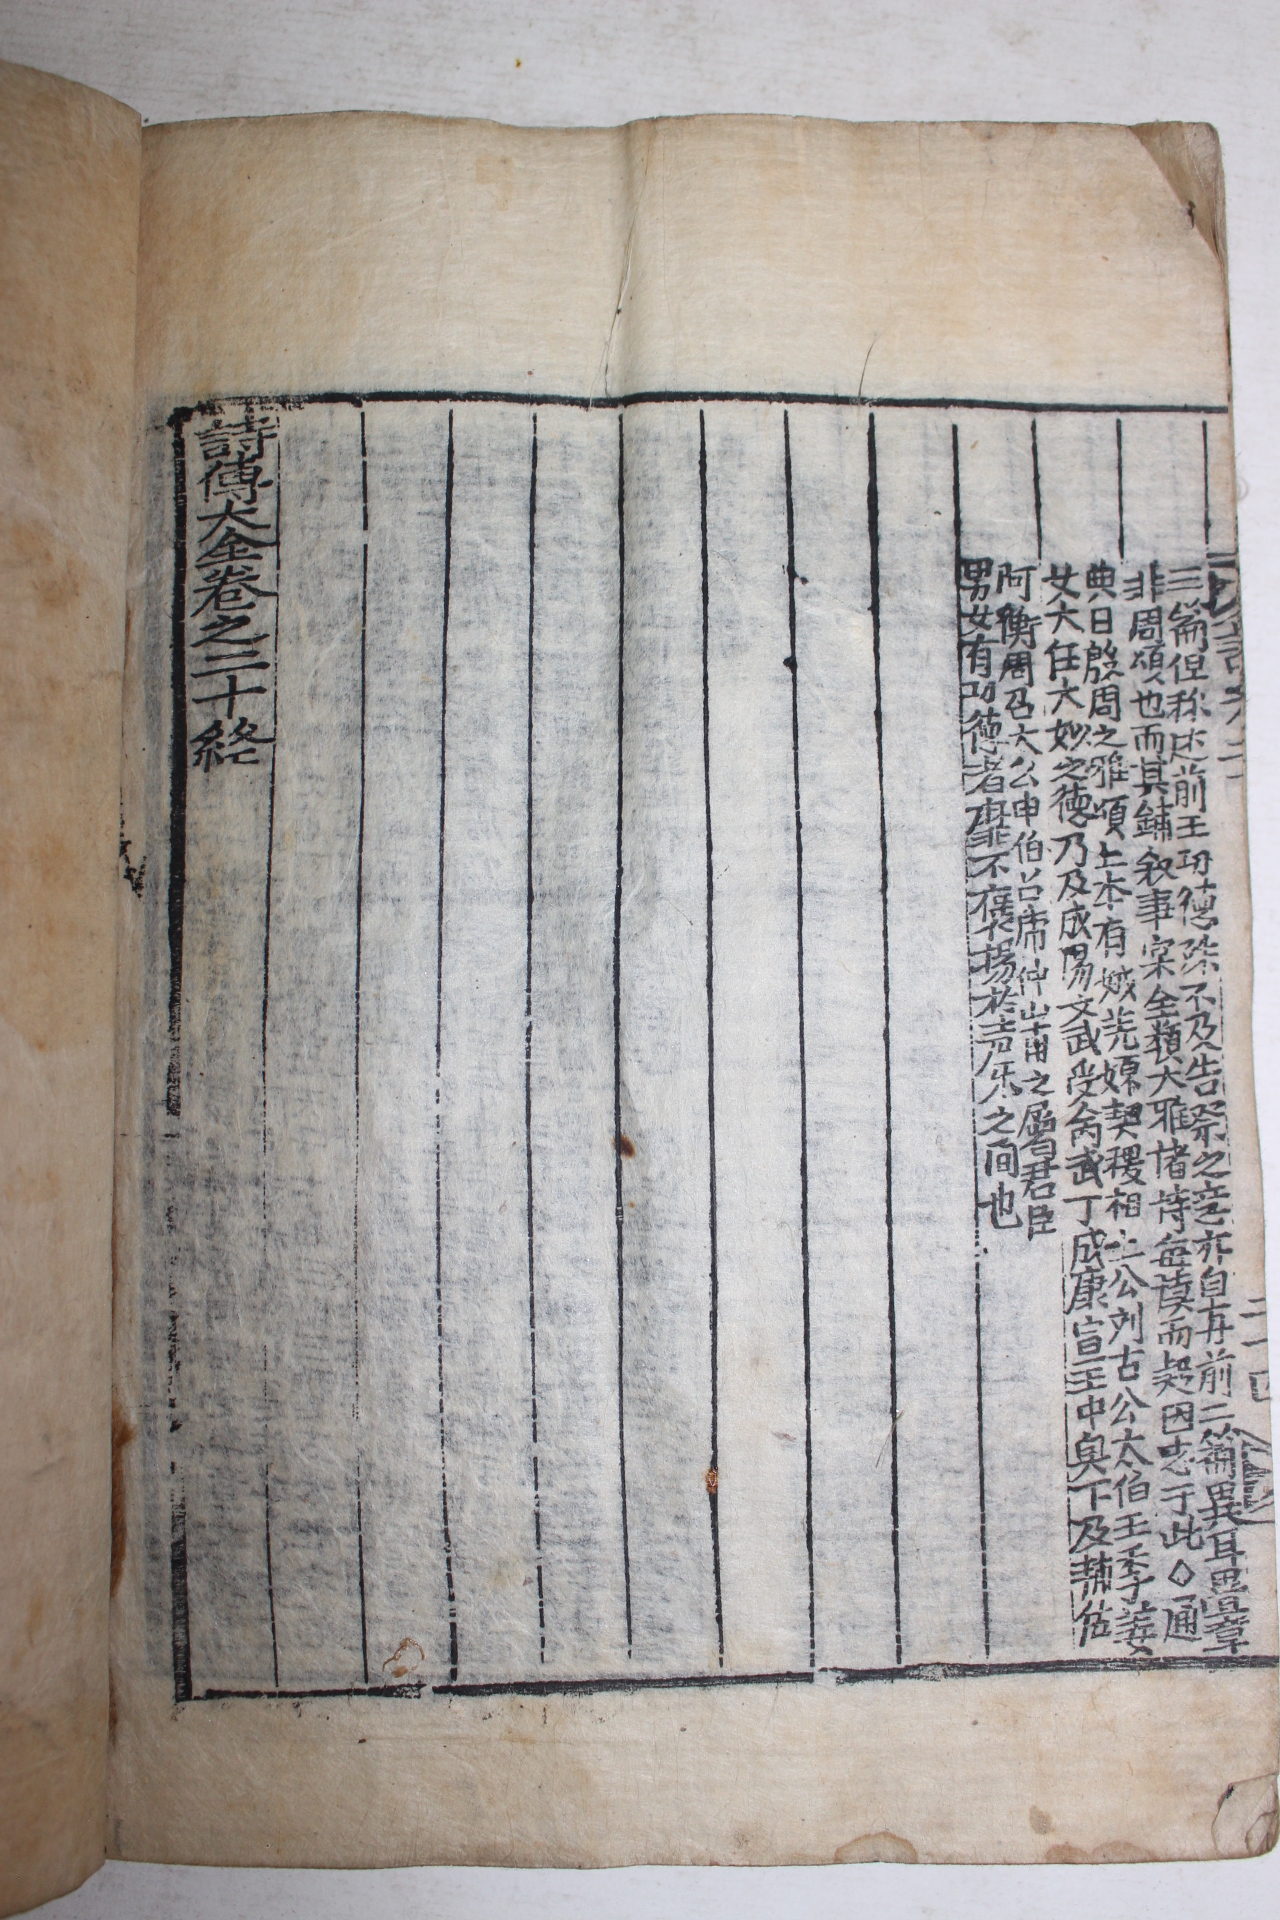 三篇但稱述前王功德殊不及告祭之意亦自與前二篇異耳豈章
非周頌也而其鋪敘事宲全類大雅諸詩每讀而疑因志于此◇通
典曰殷周之雅頌上本有娀羌嫄契稷相土公刘古公太伯王季姜
女大任大姒之德乃及成湯文武受命武丁成康宣王中兴下及輔佐
阿衡周召大公申伯召虎仲山甫之屬君臣
男女有功德者靡不褒揚於声乐之间也
詩傳大全卷之二十終